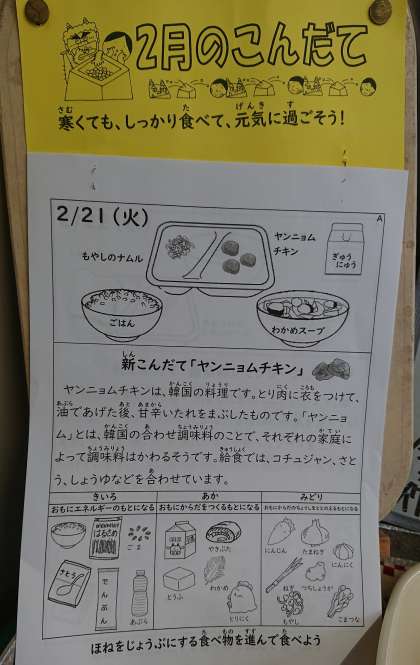 2月のこんだて
寒くても、しっかり食べて、元気に過ごそう！
2/21（火）
A
もやしのナムル
ヤンニョム
チキン
ぎゅう
にゅう
ごはん
わかめスープ
新こんだて「ヤンニョムチキン」
ヤンニョムチキンは、韓国の料理です。とり肉に衣をつけて、
油であげた後、甘辛いたれをまぶしたものです。「ヤンニョ
ム」とは、韓国の合わせ調味料のことで、それぞれの家庭に
よって調味料はかわるそうです。給食では、コチュジャン、さと
う、しょうゆなどを合わせています。
きいろ
あか
みどり
おもにエネルギーのもとになる
おもにからだをつくるもとになる
おもにからだのちょうしをととのえるもとになる
はるさめ
ごま
さとう
でんぷん
あぶら
やきぶた
とうふ
わかめ
とりにく
にんじん
たまねぎ
にんにく
ねぎ
つちしょうが
もやし
こまつな
ほねをじょうぶにする食べ物を進んで食べよう